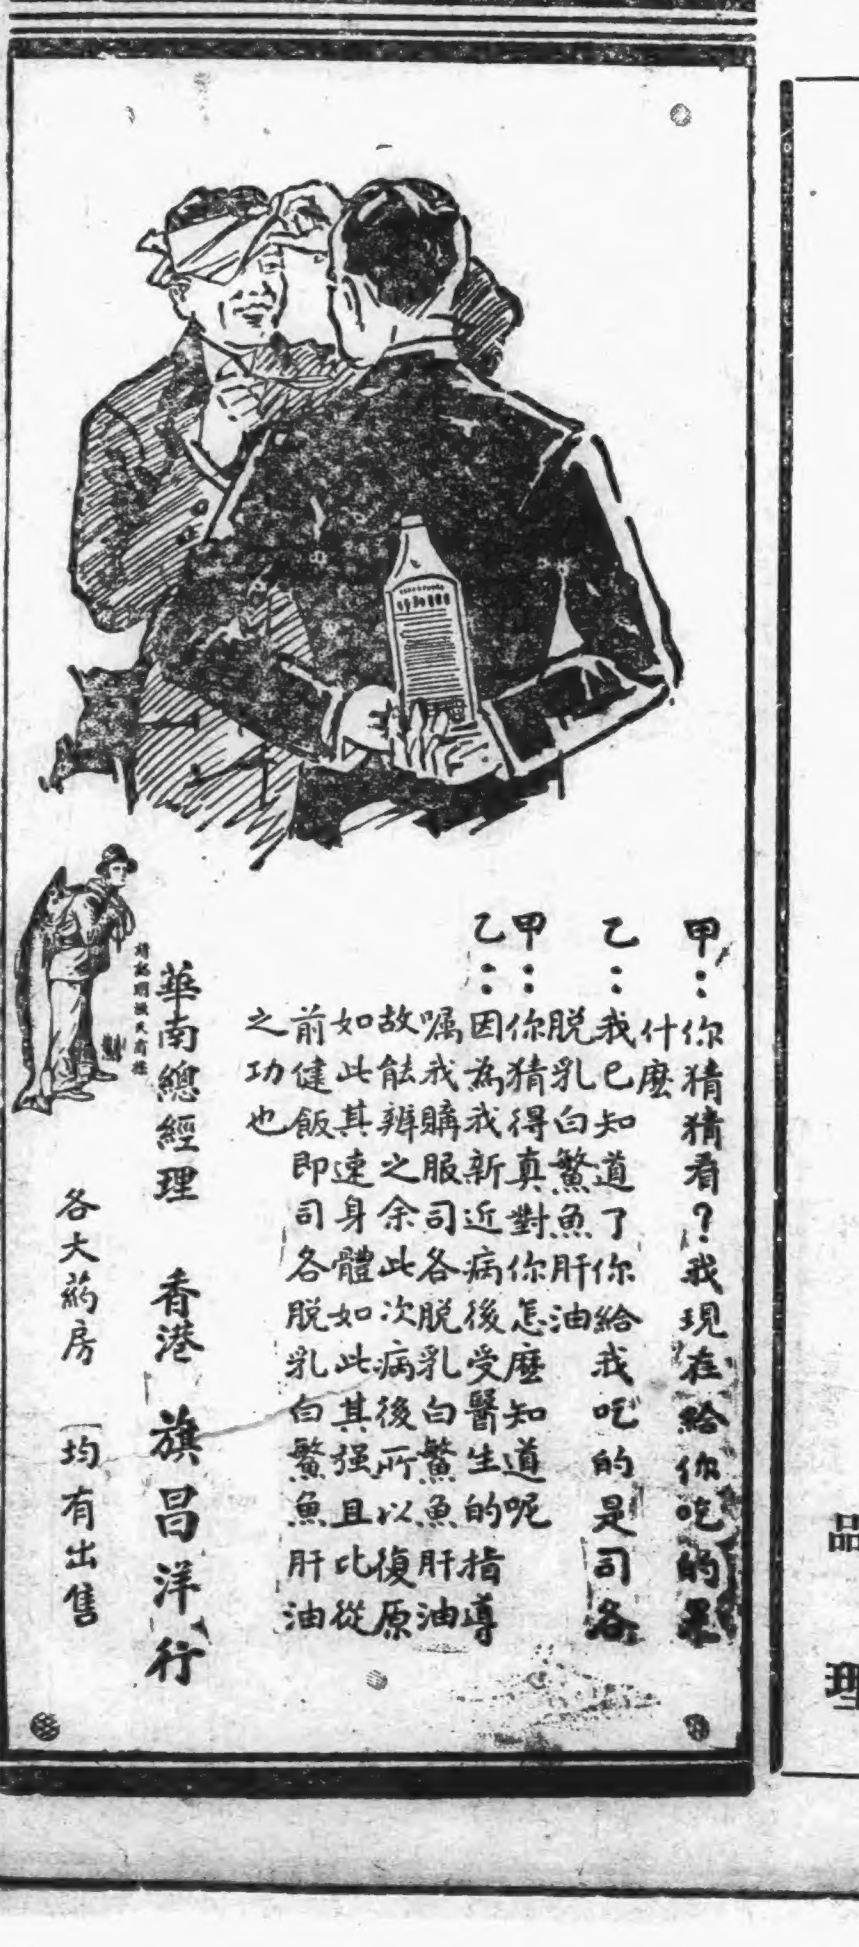 甲：你猜猜看？我現在給你吃的是
什麽
乙：我已知道了你給我吃的是司各
脫乳白鰵魚肝油
甲：你猜得真對你怎麽知道呢
乙：因為我新近病後受醫生的指導
嘱我購服司各脫乳白鰵魚肝油
故能辨之余此次病後所以復原
如此其速身體如此其强且比從
前健飯即司各脫乳白鰵魚肝油
之功也
華南總經理 香港 旗昌洋行
各大葯房 均有出售
品
理